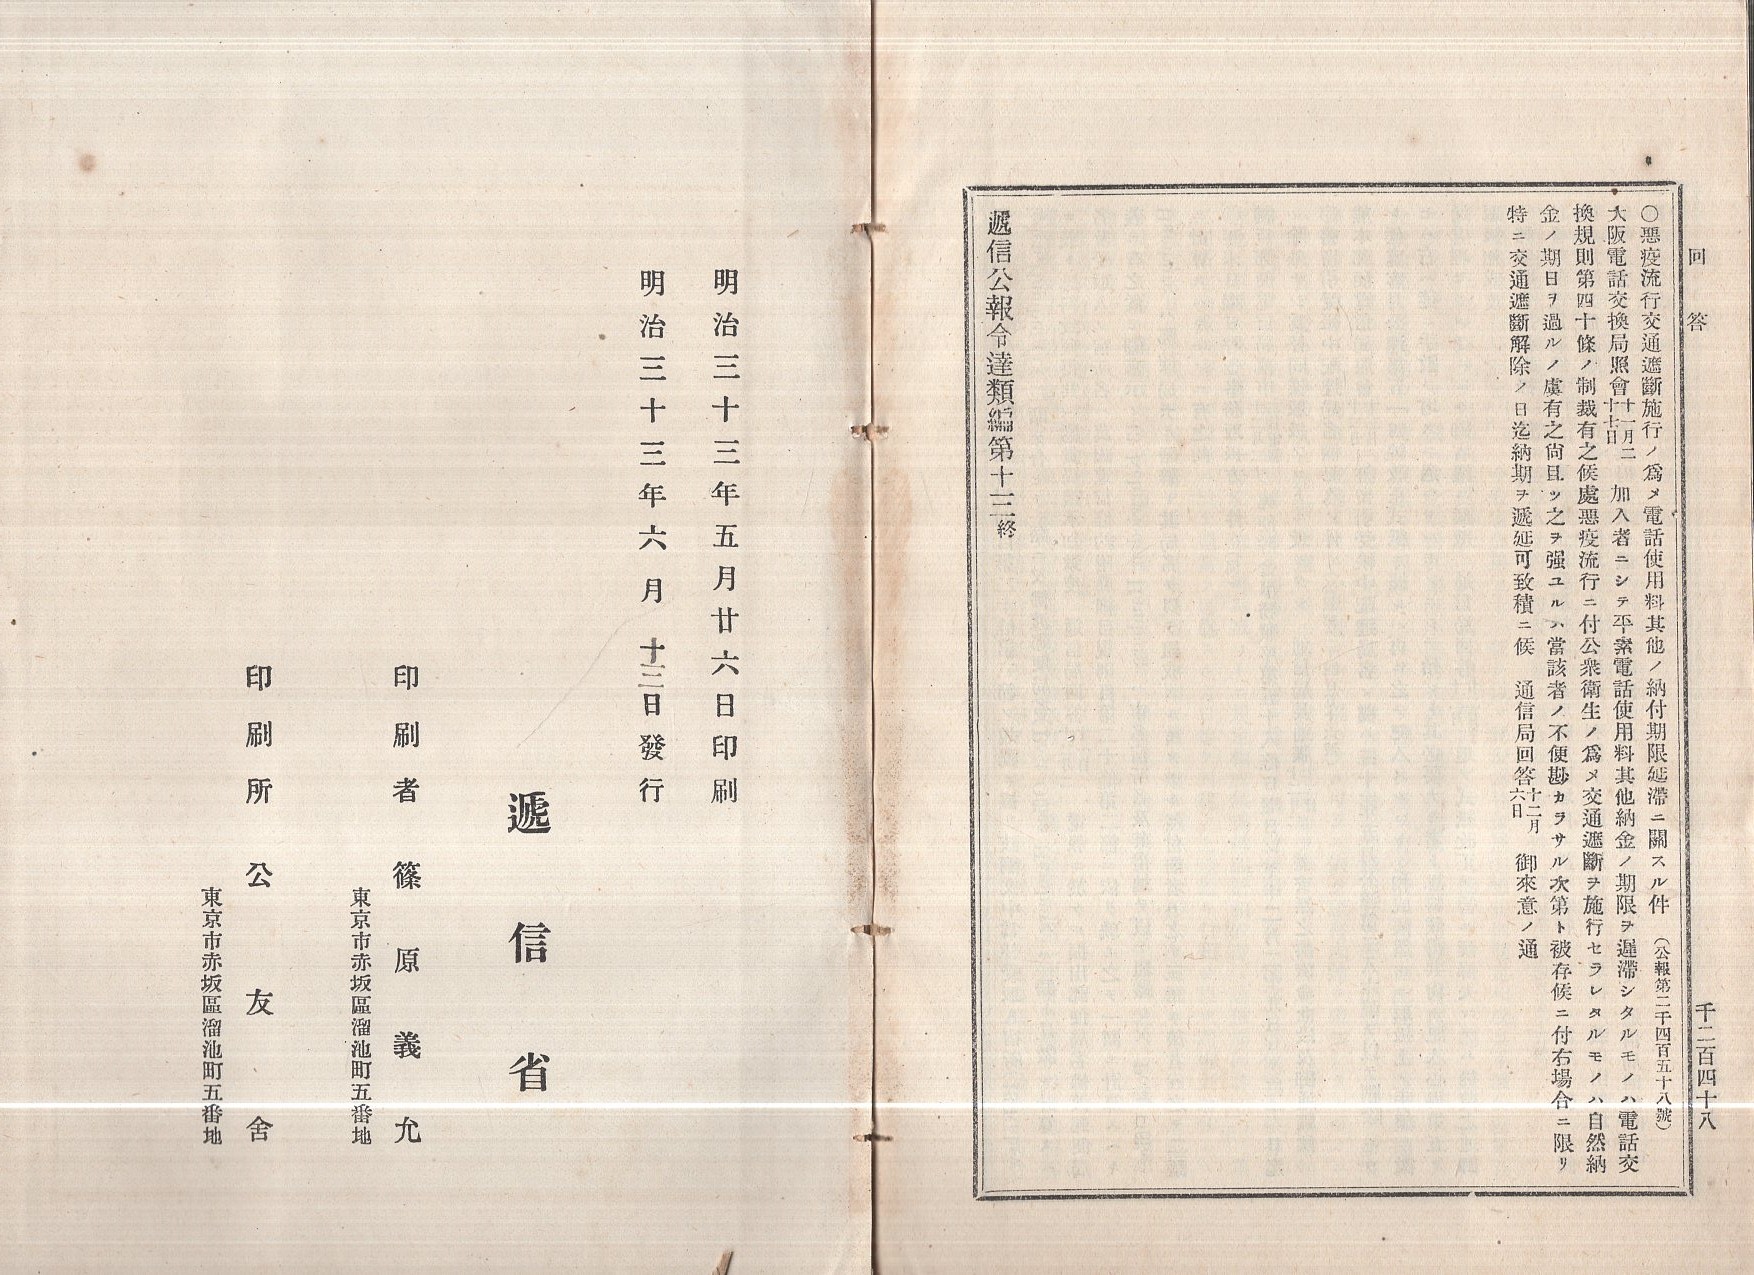 回答
千二百四十八
〇悪疫流行交通遮斷施行ノ爲メ電話使用料其他ノ納付期限延滯ニ關スル件（公報第二千四百五十八號）
大阪電話交換局照會十一月二十七日 加入者ニシテ平素電話使用料其他納金ノ期限ヲ遲滯シタルモノハ電話交
換規則第四十條ノ制裁有之候處悪疫流行ニ付公衆衛生ノ爲メ交通遮斷ヲ施行セラレタルモノハ自然納
金ノ期日ヲ過ルノ虞有之尚且ツ之ヲ强ユルハ當該者ノ不便尠カラサル次第ト被存候ニ付右場合ニ限リ
特ニ交通遮斷解除ノ日迄納期ヲ遞延可致積ニ候 通信局回答十二月六日 御來意ノ通
遞信公報令達類編第十三終
明治三十三年五月廿六日印刷
明治三十三年六月十三日發行
遞信省
印刷者 篠原義允
東京市赤坂區溜池町五番地
印刷所 公友舍
東京市赤坂區溜池町五番地